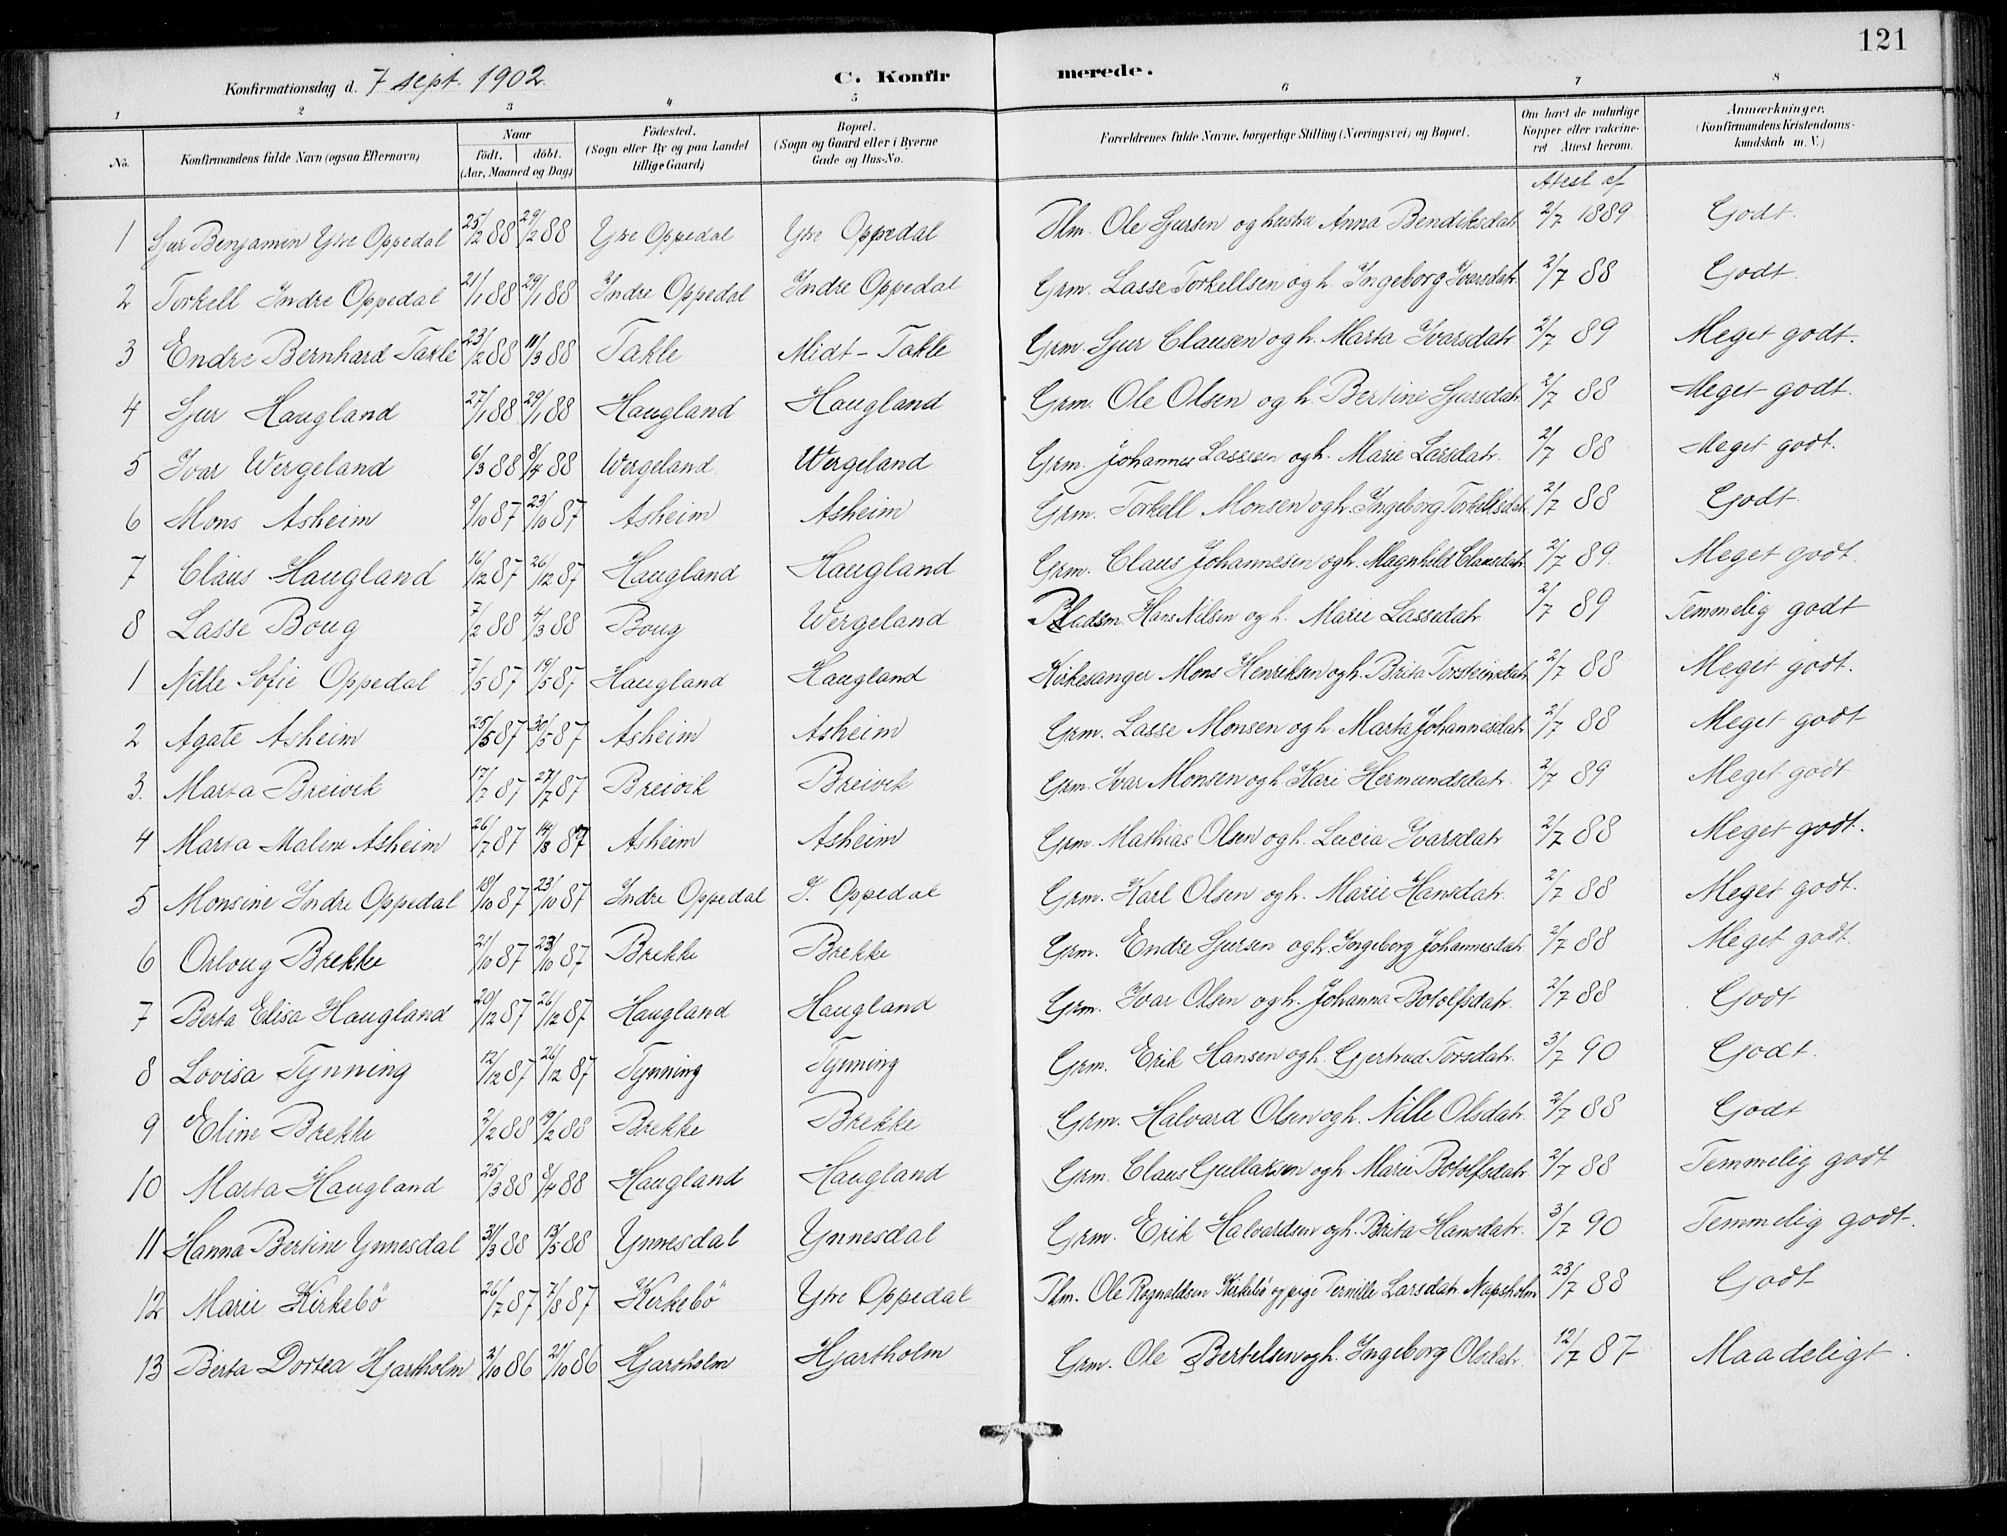 121
Konfirmationsdag d. 7 sept. 1902. C. Konfirmerede.
1 2 3 4 5 6 7 8
No. Konfirmandens fulde Navn (ogsaa Efternavn) Naar födt. döbt. (Aar, Maaned og Dag) Födested. (Sogn eller By og paa Landet tillige Gaard) Bopæl. (Sogn og Gaard eller i Byerne Gade og Hus-No. Forældrenes fulde Navne, borgerlige Stilling (Næringsvei) og Bopæl. Om havt de naturlige Kopper eller vakcineret. Attest herom. Anmærkninger. (Konfirmandens Kristendomskundskab m. V.)
Atest af
1 Sjur Benjamin Ytre Oppedal 25/2 88 29/2 88 Ytre Oppedal Ytre Oppedal Thm. Ole Sjursen og hustru Anna Bendiksdatr 2/7 1889 Godt.
2 Torkell Indre Oppedal 21/1 88 29/1 88 Indre Oppedal Indre Oppedal Grm. Lasse Torkellsen og h. Ingeborg Ivarsdatr. 2/7 88 Godt.
3 Endre Bernhard Takle 23/2 88 11/3 88 Takle Midt-Takle Grm. Sjur Clausen og h. Marta Ivarsdatr 2/7 89 Meget godt.
4 Sjur Haugland 27/1 88 29/1 88 Haugland Haugland Grm. Ole Olsen og h. Bertine Sjursdatr. 2/7 88 Meget godt.
5 Ivar Wergeland 6/3 88 8/4 88 Wergeland Wergeland Grm. Johannes Lassesen og h. Marie Larsdatr. 2/7 88 Meget godt.
6 Mons Asheim 9/10 87 23/10 87 Asheim Asheim Grm. Torkell Monsen og h. Ingeborg Torkellsdatr. 2/7 88 Godt
7 Claus Haugland 16/12 87 26/12 87 Haugland Haugland Grm. Claus Johannesen og h. Magnhild Clausdatr 2/7 89. Meget godt.
8 Lasse Boug 7/2 88 4/3 88 Boug Wergeland Pladsm. Hans Nilsen og h. Marie Lassedatr. 2/7 89 Temmelig godt
1 Nille Sofie Oppedal 7/5 87 19/5 87 Haugland Haugland Kirkesanger Mons Henriksen og h. Brita Torsteinsdatr 2/7 88 Meget godt.
2 Agate Asheim 25/5 87 30/5 87 Asheim Asheim Grm. Lasse Monsen og h. Marta Johannesdatr 2/7 88 Meget godt
3. Marta Breivik 17/7 87 27/7 87 Breivik Breivik Grm. Ivar Monsen og h. Kari Hermundsdatr. 2/7 89 Meget godt
4 Marta Malene Asheim 26/7 87 14/8 87 Asheim Asheim Grm. Mathias Olsen og h. Lucia Ivarsdatr 2/7 88 Meget godt.
5 Monsine Indre Oppedal 18/10 87 23/10 87 Indre Oppedal I. Oppedal Grm. Karl Olsen og h. Marie Hansdatr. 2/7 88 Meget godt.
6 Orloug Brekke 21/10 87 23/10 87 Brekke Brekke Grm. Endre Sjursen og h. Ingeborg Johannesdatr 2/7 88 Meget godt.
7 Berta Elisa Haugland 20/12 87 26/12 87 Haugland Haugland Grm. Ivar Olsen og h. Johanna Botolfsdatr. 2/7 88 Godt
8 Lovisa Tynning 12/12 87 26/12 87 Tynning Tynning Grm. Erik Hansen og h. Gjertrud Torsdatr. 3/7 90 Godt.
9 Eline Brekke 2/2 88 19/2 88 Brekke Brekke Grm. Halvard Olsen og h. Nille Olsdatr. 2/7 88 Godt
10 Marta Haugland 25/3 88 8/4 88 Haugland Haugland Grm. Claus Gullaksen og h. Marie Botolfsdatr. 2/7 88 Temmelig godt
11 Hanna Bertine Ynnesdal 31/3 88 13/5 88 Ynnesdal Ynnesdal Grm. Erik Halvardsen og h. Brita Hansdatr. 3/7 90 Temmelig godt.
12 Marie Kirkebö 26/7 87 7/8 87 Kirkebö Ytre Oppedal Thm. Ole Rognaldsen Kirkebö og pige Pernille Larsdatr. Napsholm 23/7 88 Godt
13 Berta Dortea Hjartholm 2/10 86 21/10 86 Hjartholm Hjartholm Grm. Ole Bertelsen og h. Ingeborg Olsdatr. 12/7 87 Maadeligt.